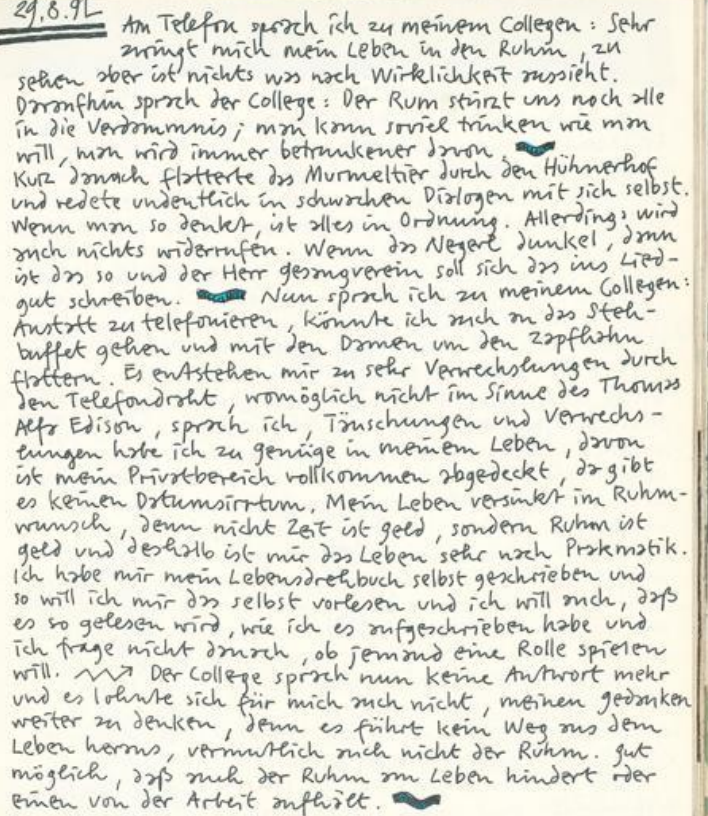 29.8.92
Am Telefon sprach ich zu meinem Collegen: Sehr
zwingt mich mein Leben in den Ruhm, zu
sehen aber ist nichts was nach Wirklichkeit aussieht.
Daraufhin sprach der College: Der Rum stürzt uns noch alle
in die Verdammnis; man kann soviel trinken wie man
will, man wird immer betrunkener davon.
Kurz danach flatterte das Murmeltier durch den Hühnerhof
und redete undentlich in schwachen Dialogen mit sich selbst.
Wenn man so denket, ist alles in Ordnung. Allerdings wird
auch nichts widerrufen. Wenn das Negerl dunkel, dann
ist das so und der Herr gesangverein soll sich das ins Lied-
gut schreiben. Nun sprach ich zu meinem Collegen:
Anstatt zu telefonieren, könnte ich auch an das Steh-
buffet gehen und mit den Damen um den Zapfhahn
flattern. Es entstehen mir zu sehr Verwechslungen durch
den Telefondraht, womöglich nicht im Sinne des Thomas
Alfa Edison, sprach ich, Täuschungen und Verwechs-
lungen habe ich zu genüge in meinem Leben, davon
ist mein Privatbereich vollkommen abgedeckt, da gibt
es keinen Datumsirrtum. Mein Leben versinket im Ruhm-
wunsch, denn nicht Zeit ist geld, sondern Ruhm ist
geld und deshalb ist mir das Leben sehr nach Prakmatik.
Ich habe mir mein Lebensdrehbuch selbst geschrieben und
so will ich mir das selbst vorlesen und ich will auch, daß
es so gelesen wird, wie ich es aufgeschrieben habe und
ich frage nicht danach, ob jemand eine Rolle spielen
will. Der College sprach nun keine Antwort mehr
und es lohnte sich für mich auch nicht, meinen gedanken
weiter zu denken, denn es führt kein Weg aus dem
Leben heraus, vermutlich auch nicht der Ruhm. gut
möglich, daß auch der Ruhm am Leben hindert oder
einen von der Arbeit aufhält.